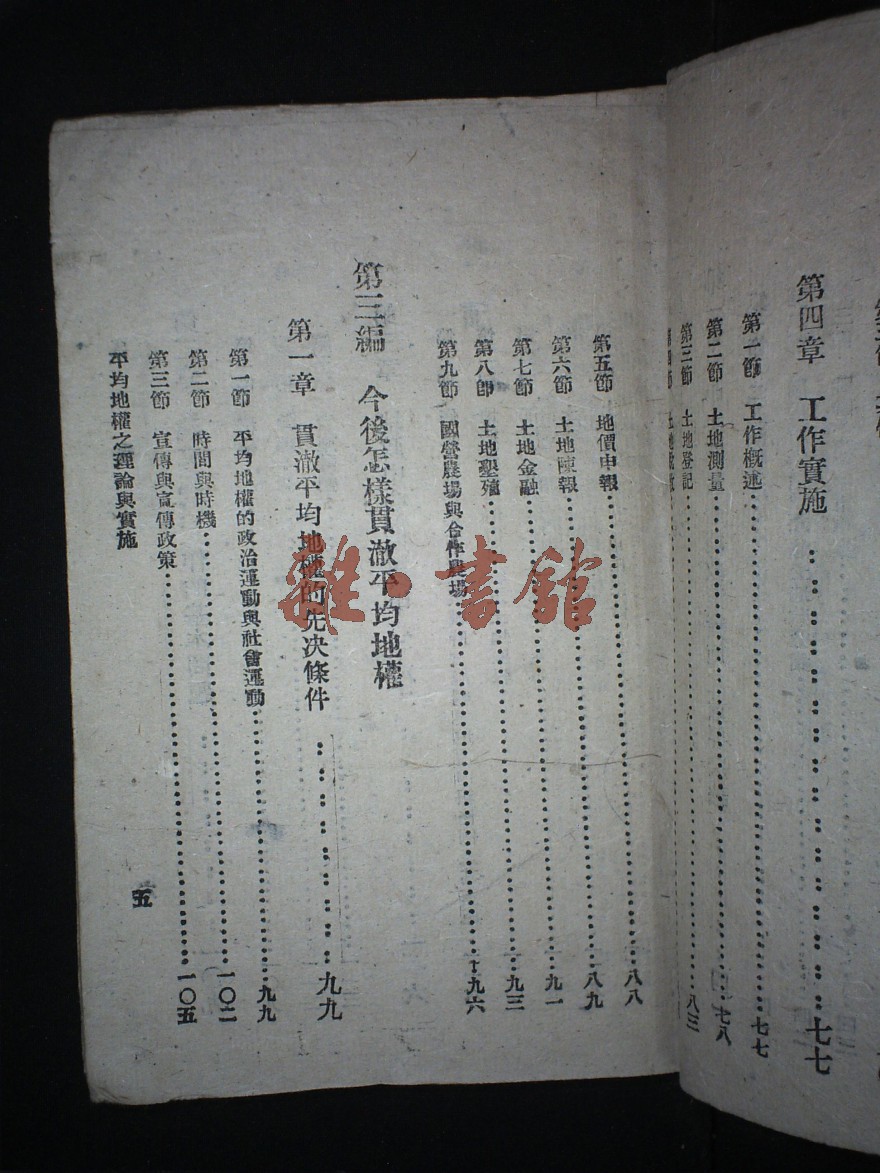 第四章　工作實施………………七七
第一節　工作概述………………七七
第二節　土地測量………………七八
第三節　土地登記………………八三
第五節　地價申報………………八八
第六節　土地陳報………………八九
第七節　土地金融………………九一
第八節　土地墾殖………………九三
第九節　國營農場與合作農場………………九六
第三編　今後怎樣貫澈平均地權
第一章　貫澈平均地權的先決條件………………九九
第一節　平均地權的政治運動與社會運動………………九九
第二節　時間與時機………………一〇二
第三節　宣傳與宣傳政策………………一〇五
平均地權之理論與實施
五
雜·書館